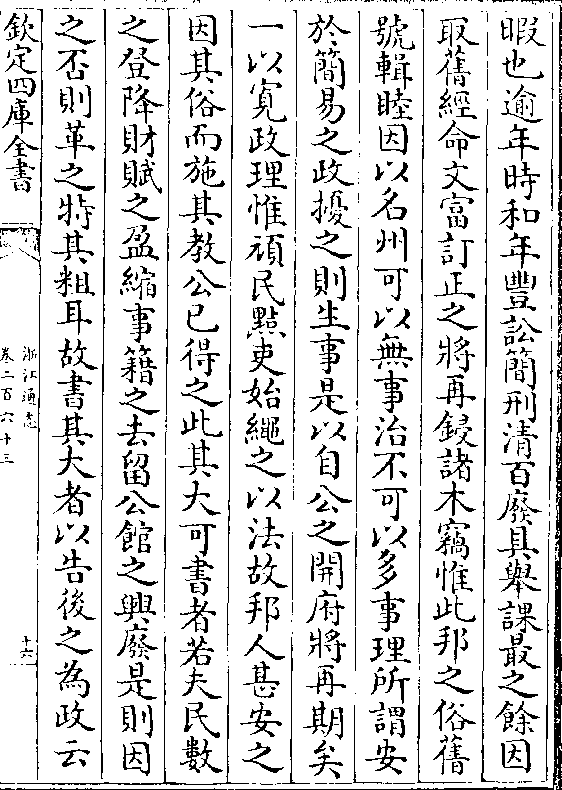 暇也逾年時和年豐訟簡刑清百廢具舉課最之餘因
取舊經命文富訂正之將再鋟諸木竊惟此邦之俗舊
號輯睦因以名州可以無事治不可以多事理所謂安
於簡易之政擾之則生事是以自公之開府將再期矣
一以寛政理惟頑民黠吏始繩之以法故邦人甚安之
因其俗而施其教公已得之此其大可書者若夫民數
之登降財賦之盈縮事籍之去留公館之興廢是則因
之否則革之特其粗耳故書其大者以告後之為政云
欽定四庫全書
浙江通志
卷二百六十三
十六